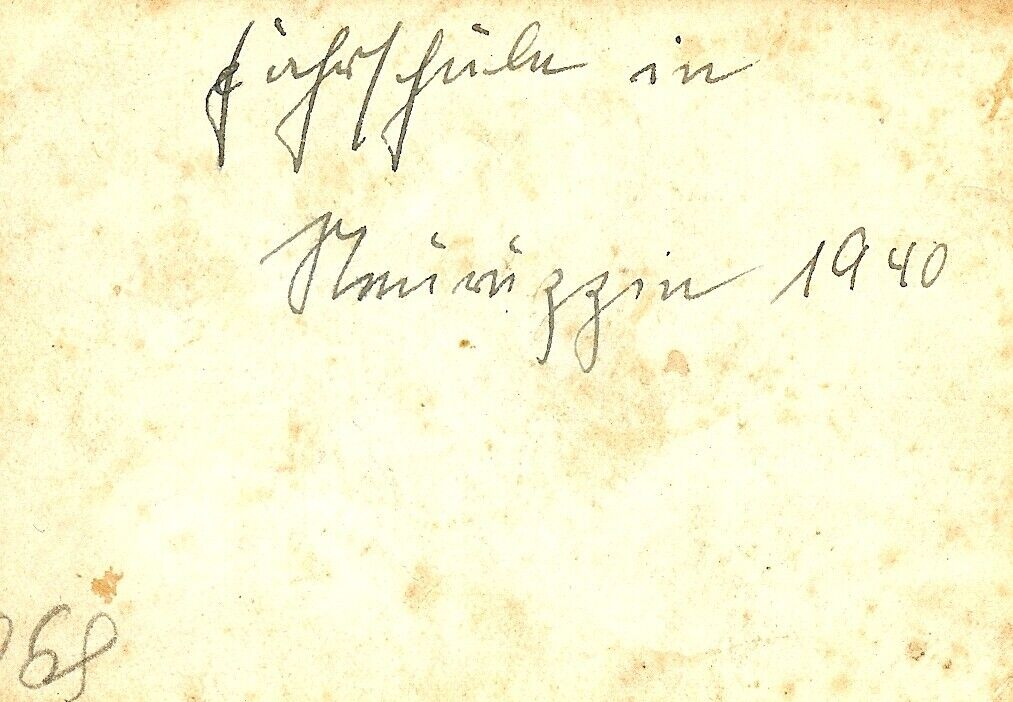 Fahrschule in
Neuruppin 1940
68